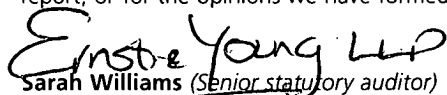 report, or for the opinions we have formed
Ernst & Young LLP
Sarah Williams (Senior statutory auditor)